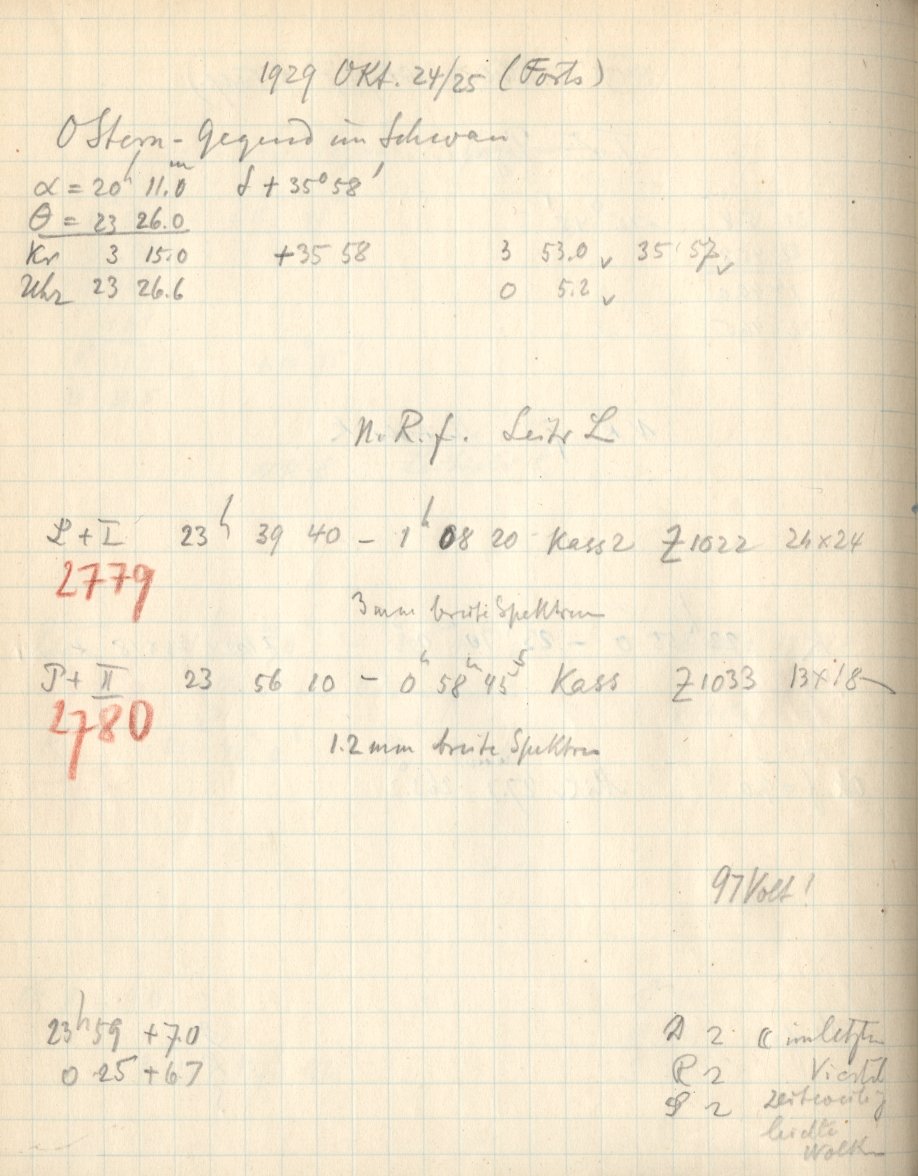 1929 Okt. 24/25 (Forts)
O Stern-Gegend im Schwan
α = 20h 11.0m δ + 35° 58'
θ = 23 26.0
Kr 3 15.0 +35 58 3 53.0 v 35 57 v
Uhr 23 26.6 0 5.2 v
N. R. f. Leitr L
L + I 23h 39 40 – 1h 08 20 Kass 2 Z 1022 24x24
2779
3 mm breite Spektren
P + II 23 56 10 – 0h 58m 45s Kass Z 1033 13x18
2780
1.2 mm breite Spektren
97 Volt!
23h 59 +7.0
0 25 +6.7
D 2 ☾ im letzten
R 2 Viertel
S 2 zeitweilig
leichte
Wolken